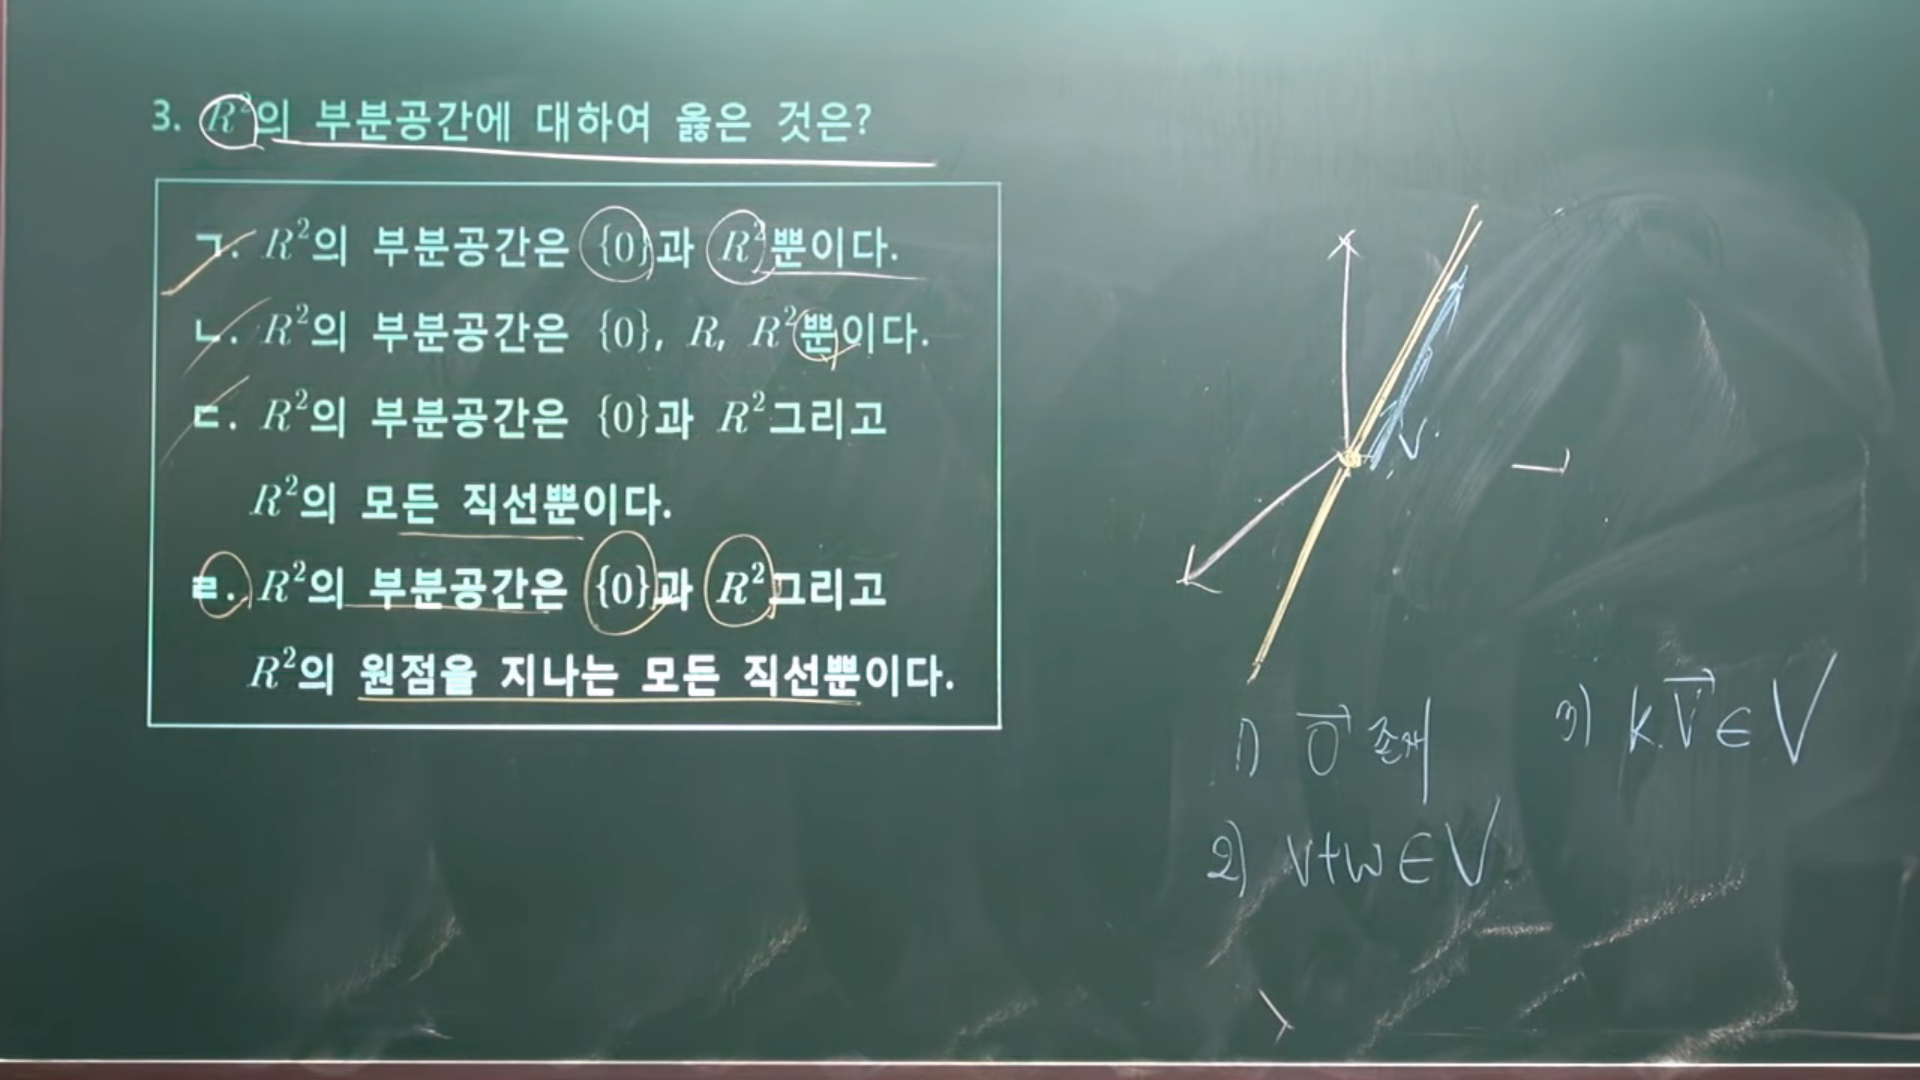 3. R²의 부분공간에 대하여 옳은 것은?
ㄱ. R²의 부분공간은 {0}과 R²뿐이다.
ㄴ. R²의 부분공간은 {0}, R, R²뿐이다.
ㄷ. R²의 부분공간은 {0}과 R²그리고
R²의 모든 직선뿐이다.
ㄹ. R²의 부분공간은 {0}과 R²그리고
R²의 원점을 지나는 모든 직선뿐이다.
V
1) 0⃗ 존재
3) k.v⃗ ∈ V
2) v+w ∈ V